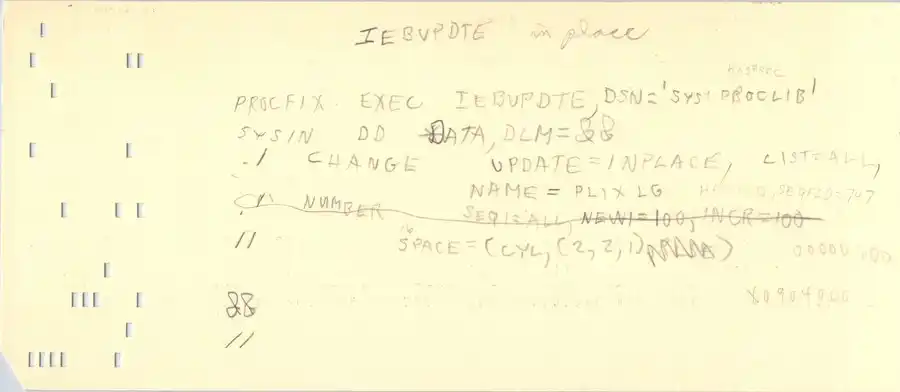 IEBUPDTE in place
PROCFIX EXEC IEBUPDTE, DSN='SYS1.PROCLIB'
SYSIN DD DATA, DLM=&&
./ CHANGE UPDATE=INPLACE, LIST=ALL,
NAME = PLIXLG SEQFLD=747
./ NUMBER SEQ1=ALL, NEW1=100, INCR=100
// SPACE=(CYL,(2,2,1)) 00000100
&& 
//